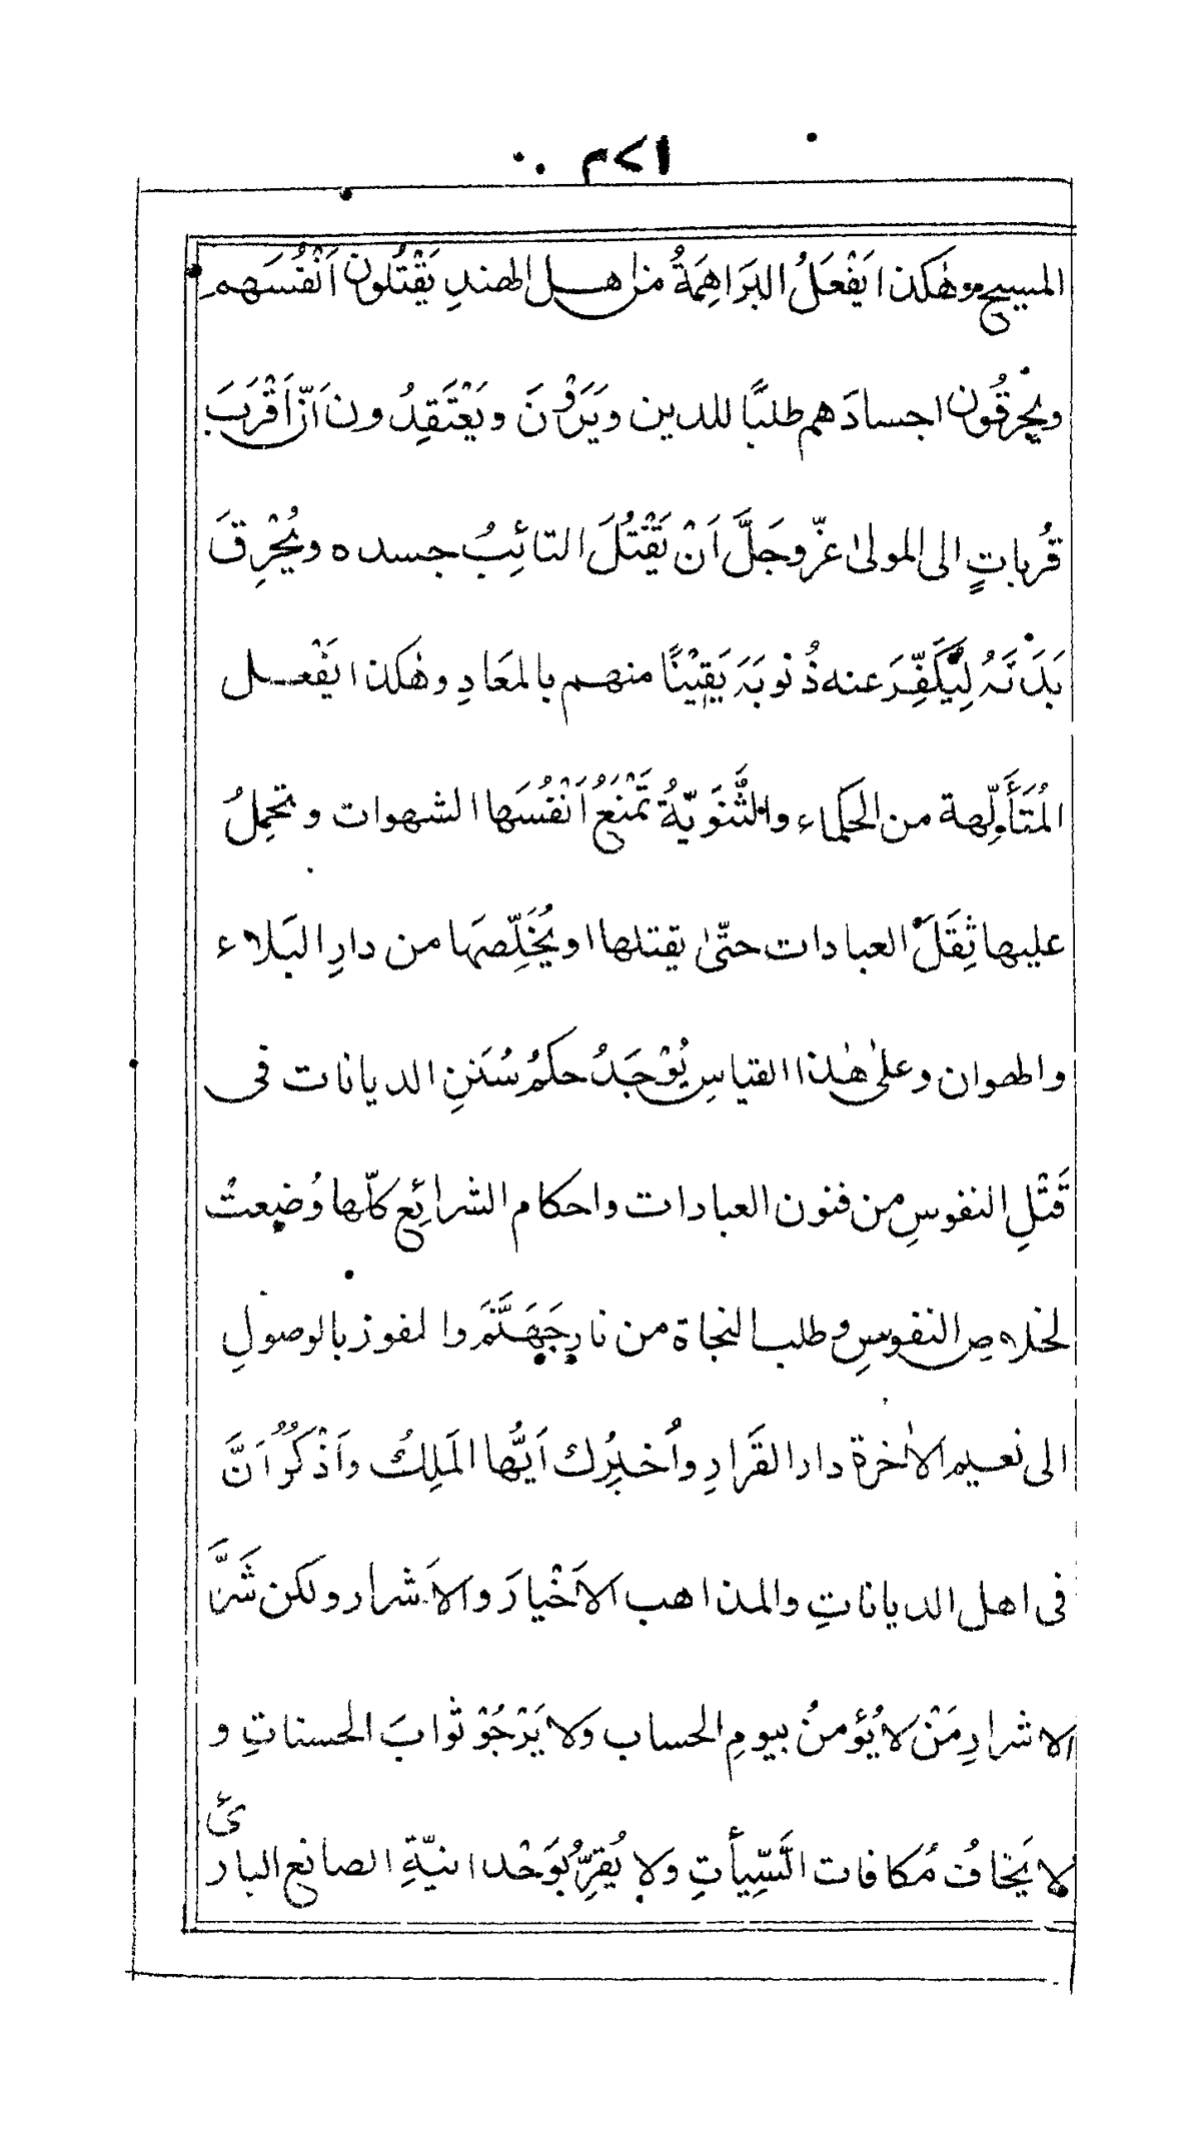 المسيح وهٰكذا يَفْعَلُ البَرَاهِمَةُ من اهل الهندِ يَقْتُلون اَنْفُسَهم
ويُحرقُون اجسادَهم طلبًا للدين ويَرَوْنَ ويَعْتَقِدُون اَنّ اَقْرَبَ
قُرباتٍ الى المولىٰ عزّوجَلَّ اَنْ يَقْتُلَ التائِبُ جسده ويُحْرِقَ
بَدَنَهُ لِيُكَفِّرَ عنه ذُنوبَهَ يَقِيْنًا منهم بالمعَادِ وهٰكذا يَفْعل
المُتَأَلِّهة من الحكماء والثَّنَوِيَّةُ تَمْنَعُ اَنْفُسَها الشهوات وتحمِلُ
عليها ثِقَلَ العبادات حتّىٰ يقتلها او يُخَلِّصهَا من دارِ البَلاء
والهوان وعلىٰ هٰذا القياسِ يُوْجَدُ حكمُ سُنَنِ الديانات فى
قَتْلِ النفوسِ من فنون العبادات واحكام الشرائِع كلّها وُضِعتْ
لخلاصِ النفوسِ وطلب النجاة من نارِ جَهَنَّمَ والفوز بالوصولِ
الى نعيم الاٰخرة دار القَرارِ واُخبِرُك اَيُّها المَلِكُ واَذْكُرُ اَنَّ
فى اهل الدياناتِ والمذاهب الاَخْيارَ والاَشرار ولكن شَرَّ
الاشرارِ مَنْ لا يُؤمنُ بيومِ الحساب ولا يَرْجُوْ ثوابَ الحسناتِ و
لا يَخافُ مُكافات السَّيِّأتِ ولا يُقِرُّ بوَحْدانيّةِ الصانع البارئ